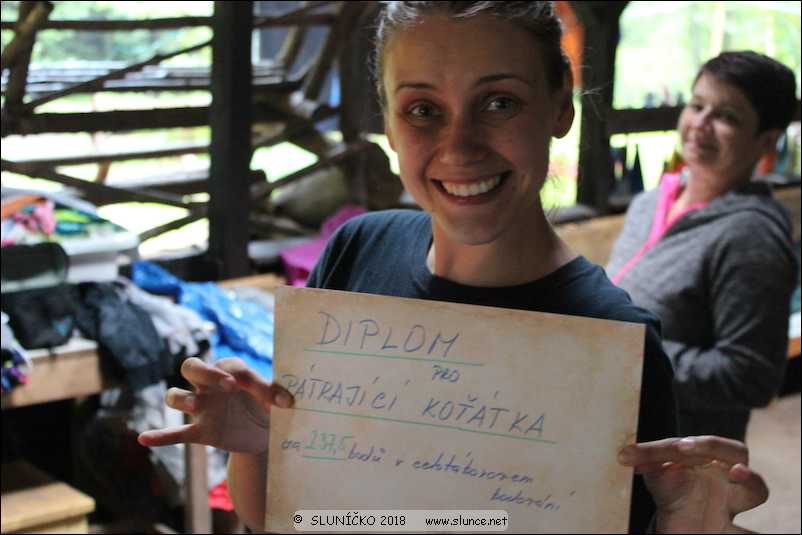 DIPLOM
PRO
PÁTRAJÍCÍ KOŤÁTKA
za 237,5 bodů v celotáborovém
bodování
© SLUNÍČKO 2018 www.slunce.net